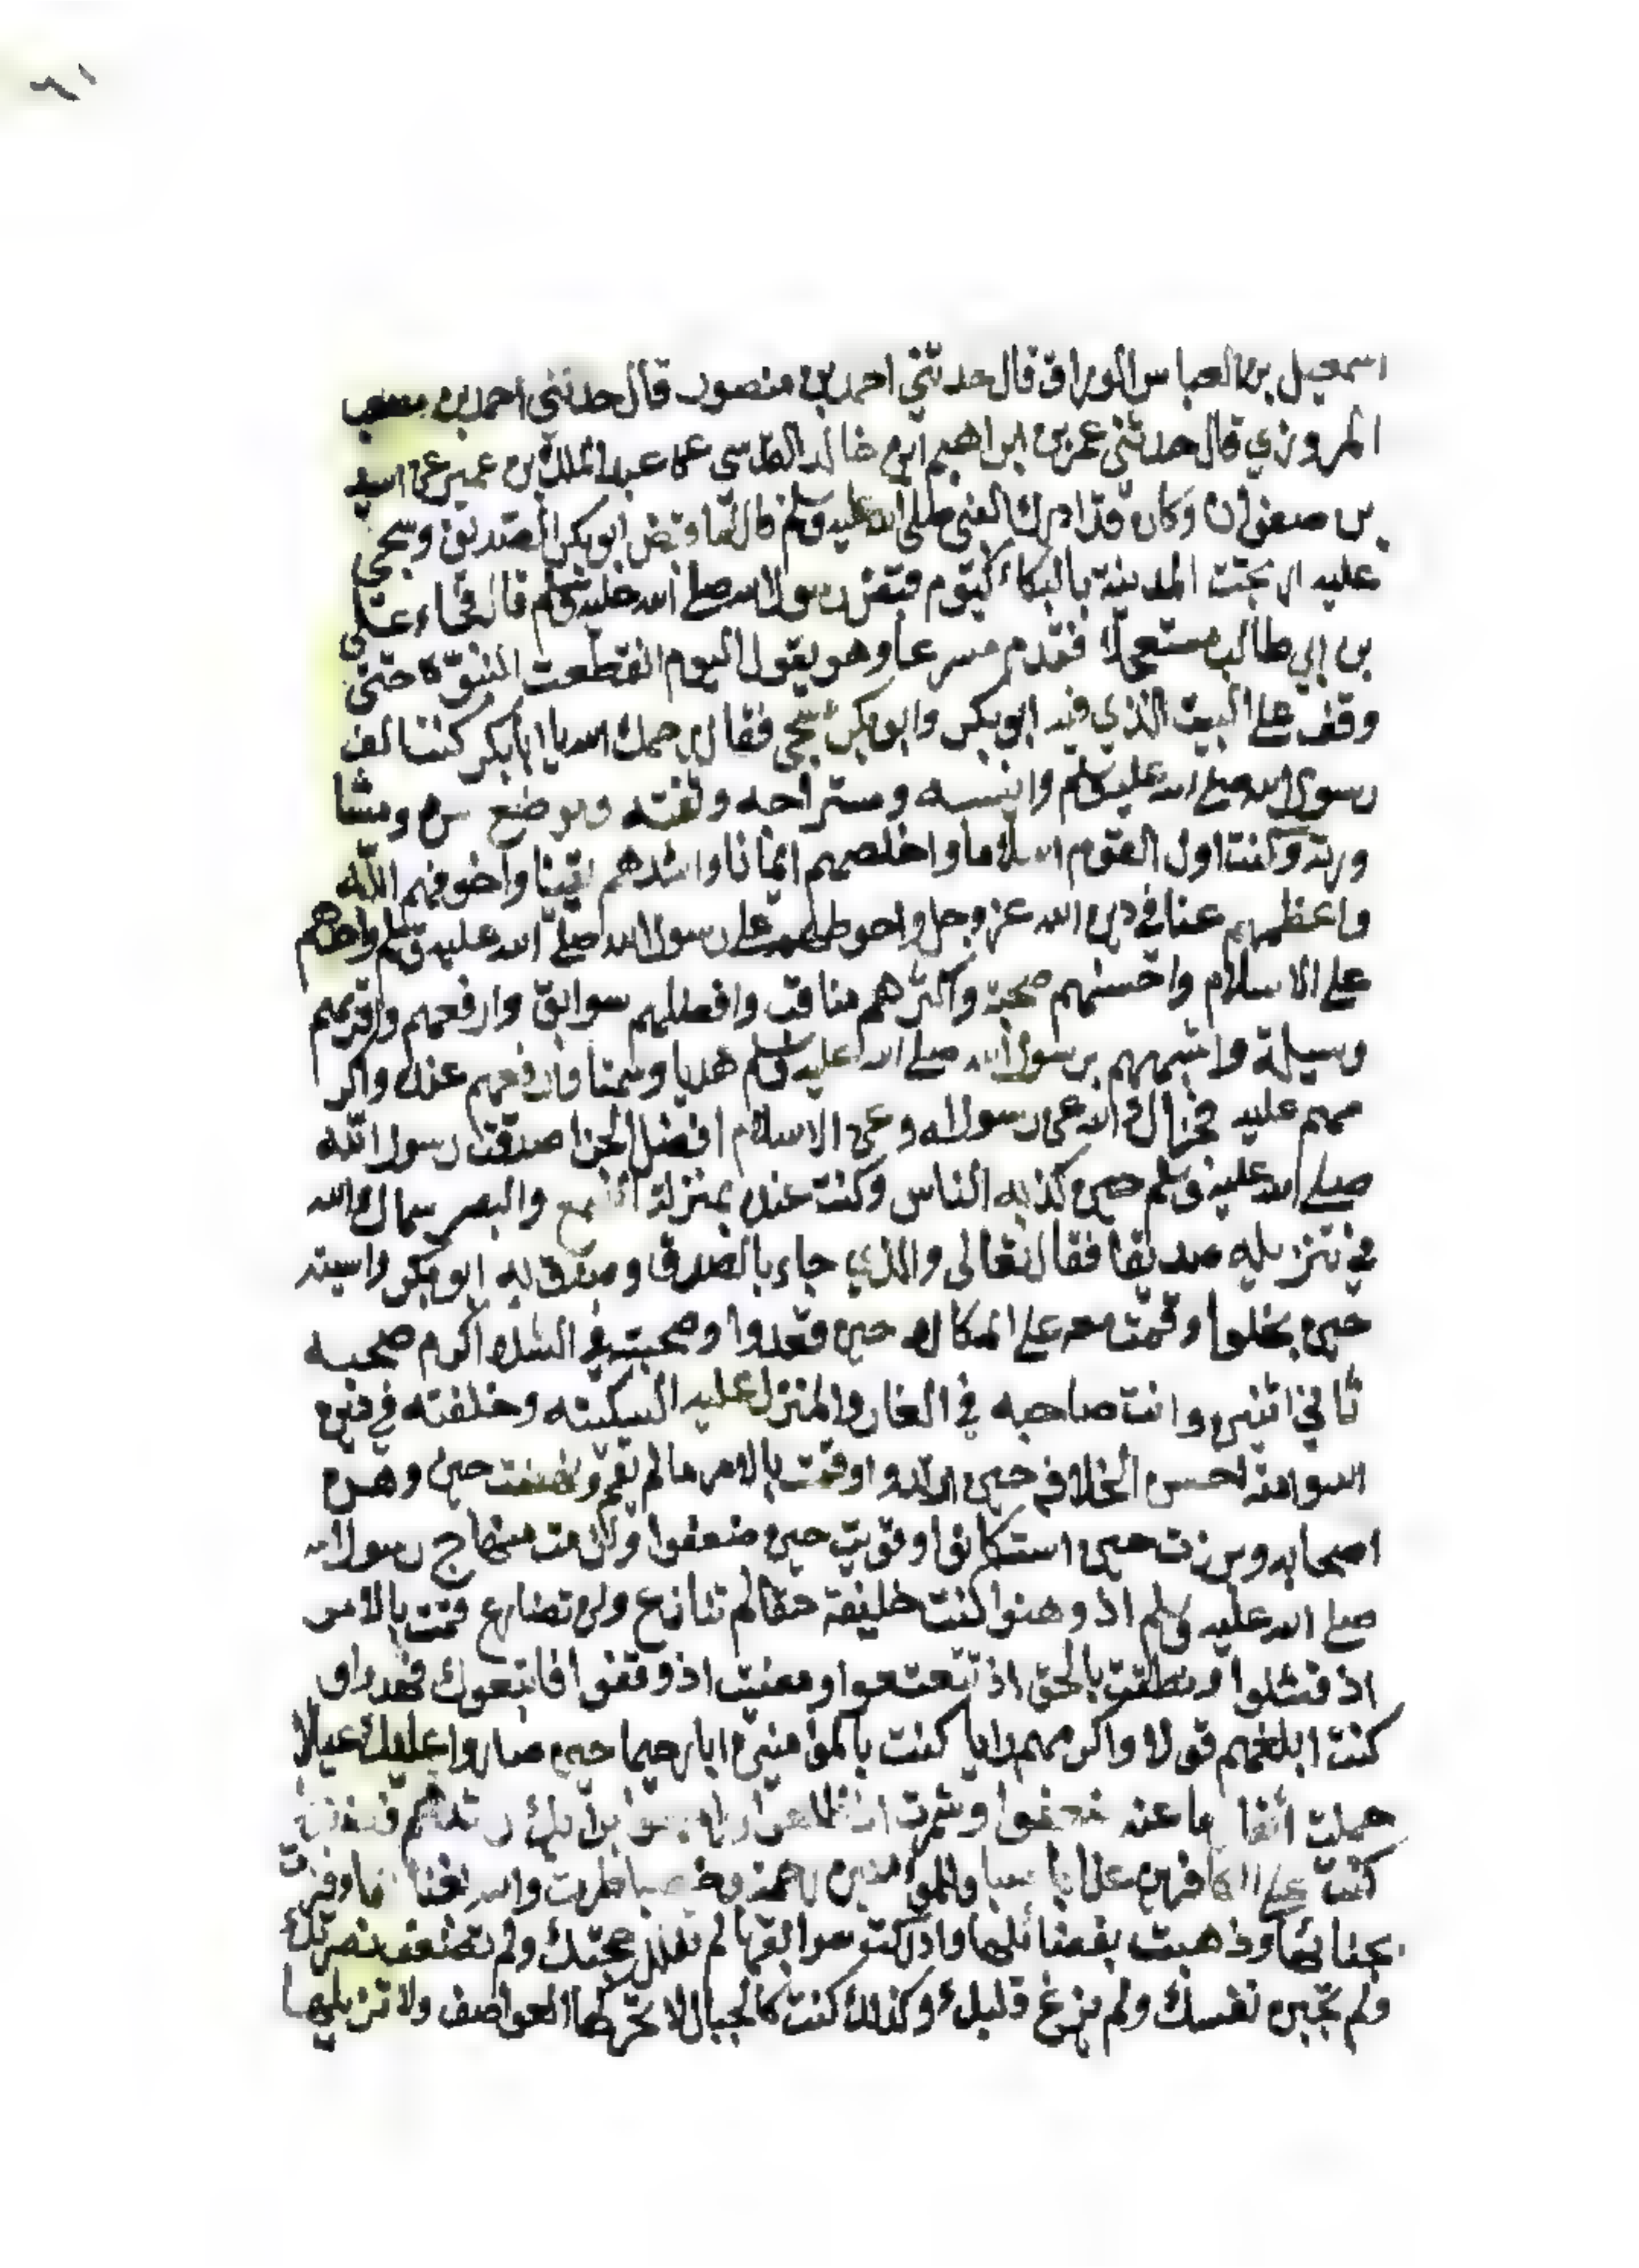 ٦١
اسمعيل بن العباس الوراق قال حدثني احمد بن منصور قال حدثني احمد بن مصعب
المروزي قال حدثني عمر بن ابراهيم ابن خالد القدسي عن عبد الملك بن عمير عن اسيد
بن صفوان وكان قد ادرك النبي صلى الله عليه وسلم قال لما قبض ابو بكر الصديق وسجي
عليه ارتجت المدينة بالبكاء كيوم قبض رسول الله صلى الله عليه وسلم قال فجاء علي
بن ابي طالب مستعجلا فتقدم مسرعا وهو يقول اليوم انقطعت النبوة حتى
وقف على البيت الذي فيه ابو بكر وابو بكر مسجى فقال رحمك الله يا ابا بكر كنت الف
رسول الله صلى الله عليه وسلم وانيسه ومستراحه وثقته وموضع سره ومشا
ورته وكنت اول القوم اسلاما واخلصهم ايمانا واشدهم يقينا واخوفهم الله
واعظمهم عنا في دين الله عز وجل واحوطهم على رسول الله صلى الله عليه وسلم
على الاسلام واحسنهم صحبة واكثرهم مناقب وافضلهم سوابق وارفعهم واقربهم
وسيلة واشبههم برسول الله صلى الله عليه وسلم هديا وسمتا وارفعهم عنده واكر
مهم عليه فجزاك الله عن رسول الله وعن الاسلام افضل الجزا صدقت رسول الله
صلى الله عليه وسلم حين كذبه الناس وكنت عنده بمنزلة السمع والبصر سماك الله
في تنزيله صديقا فقال تعالى والذي جاء بالصدق وصدق به ابو بكر واسيته
حين بخلوا وقمت معه على المكاره حين قعدوا وصحبته في الشدة اكرم صحبه
ثاني اثنين وانت صاحبه في الغار والمنزل عليه السكينه وخلفته في دين
الله احسن الخلافه حين ارتدوا وقمت بالامر ما لم يقم ونهضت حين وهن
اصحابه وبرزت حين استكانوا وقويت حين ضعفوا ولزمت منهاج رسول الله
صلى الله عليه وسلم اذ وهنوا كنت خليفة حقا لم تنازع ولن تضارع قمت بالامر
اذ فشلوا ونطقت بالحق اذ تتعتعوا ومضيت اذ وقفوا فاتبعوك فهدوا و
كنت ابلغهم قولا واكرمهم رايا كنت بالمؤمنين ابا رحيما حين صاروا عليك عيالا
حملت اثقا ما عنه ضعفوا وشمرت
كنت على الكافرين عذابا صبا وللمؤمنين رحمة وخصبا طرت والله بغنا
بجنابها وذهبت بفضائلها وادركت سوابقها لم تفلل حجتك ولم تضعف بصيرتك
ولم تجبن نفسك ولم يزغ قلبك وكذلك كنت كالجبال لا تحركها العواصف ولا تزيلها